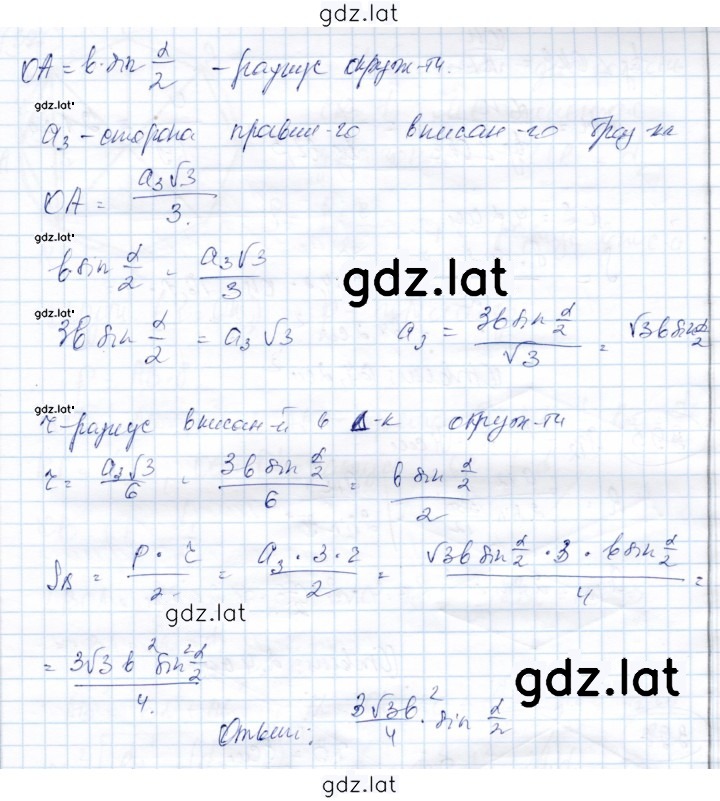 gdz.lat
OA = b·sin α/2 – радиус окруж-ти.
gdz.lat
a₃ – сторона правил-го вписан-го треуг-ка
OA = a₃√3/3.
gdz.lat
b sin α/2 = a₃√3/3
gdz.lat
gdz.lat
3b sin α/2 = a₃√3 a₃ = 3b sin α/2 / √3 = √3 b sin α/2
gdz.lat
r – радиус вписан-й в Δ-к окруж-ти
r = a₃√3/6 = 3b sin α/2 / 6 = b sin α/2 / 2
gdz.lat
S_Δ = P·r/2 = a₃·3·r/2 = √3b sin α/2 · 3 · b sin α/2 / 4 =
gdz.lat
= 3√3 b² sin² α/2 / 4.
gdz.lat
Ответ: 3√3b²/4 · sin α/2
gdz.lat